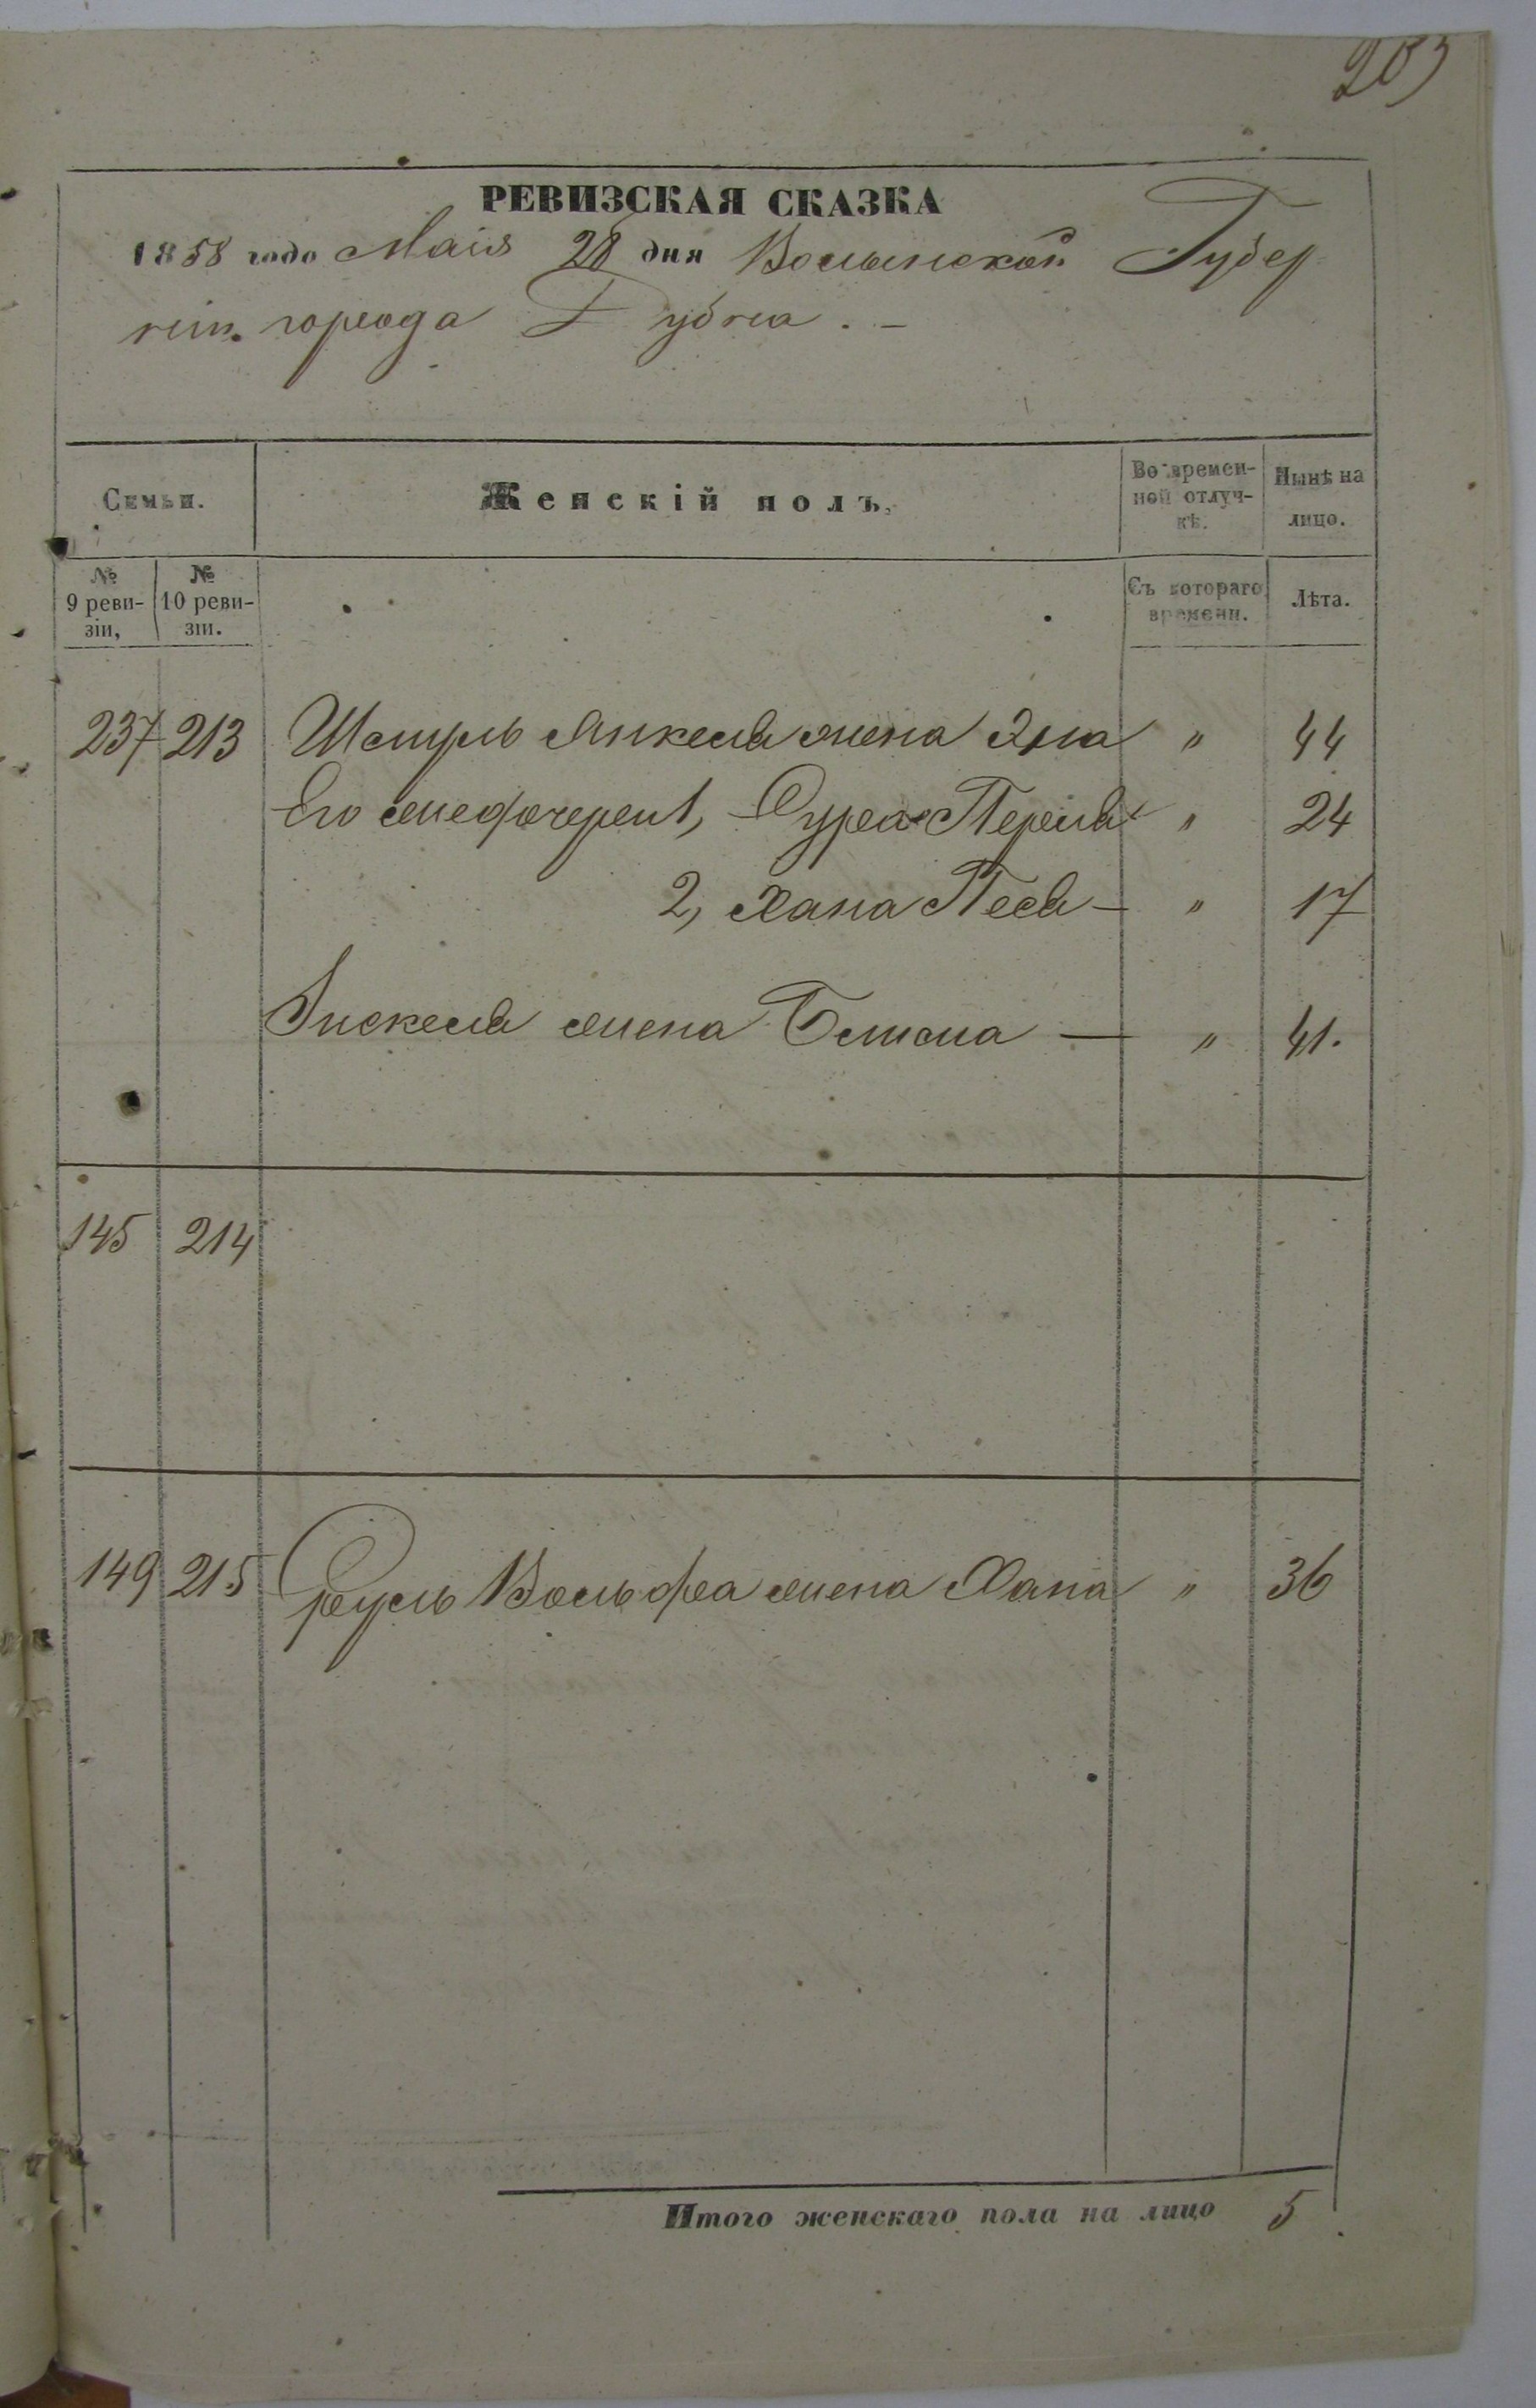 203
РЕВИЗСКАЯ СКАЗКА
1858 года Маія 28 дня Волынской Губер
ніи города Дубна . —
Семьи.
Женскій полъ.
Во времен-
ной отлуч-
кѣ.
Нынѣ на
лицо.
№
9 реви-
зіи,
№
10 реви-
зіи.
Съ котораго
времени.
Лѣта.
237 213 Шмуль Янкеля жена Эта " 44
Его дочери 1, Сура Перля " 24
2, Хана Песя — " 17
жена — " 41.
145 214
149 215 Сруль Вольфа жена Хана " 36
Итого женскаго пола на лицо 5